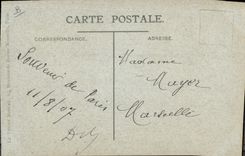 CARTE POSTALE.
CORRESPONDANCE.
ADRESSE.
Souvenir de Paris
11/8/07
Madame
Mayer
Marseille